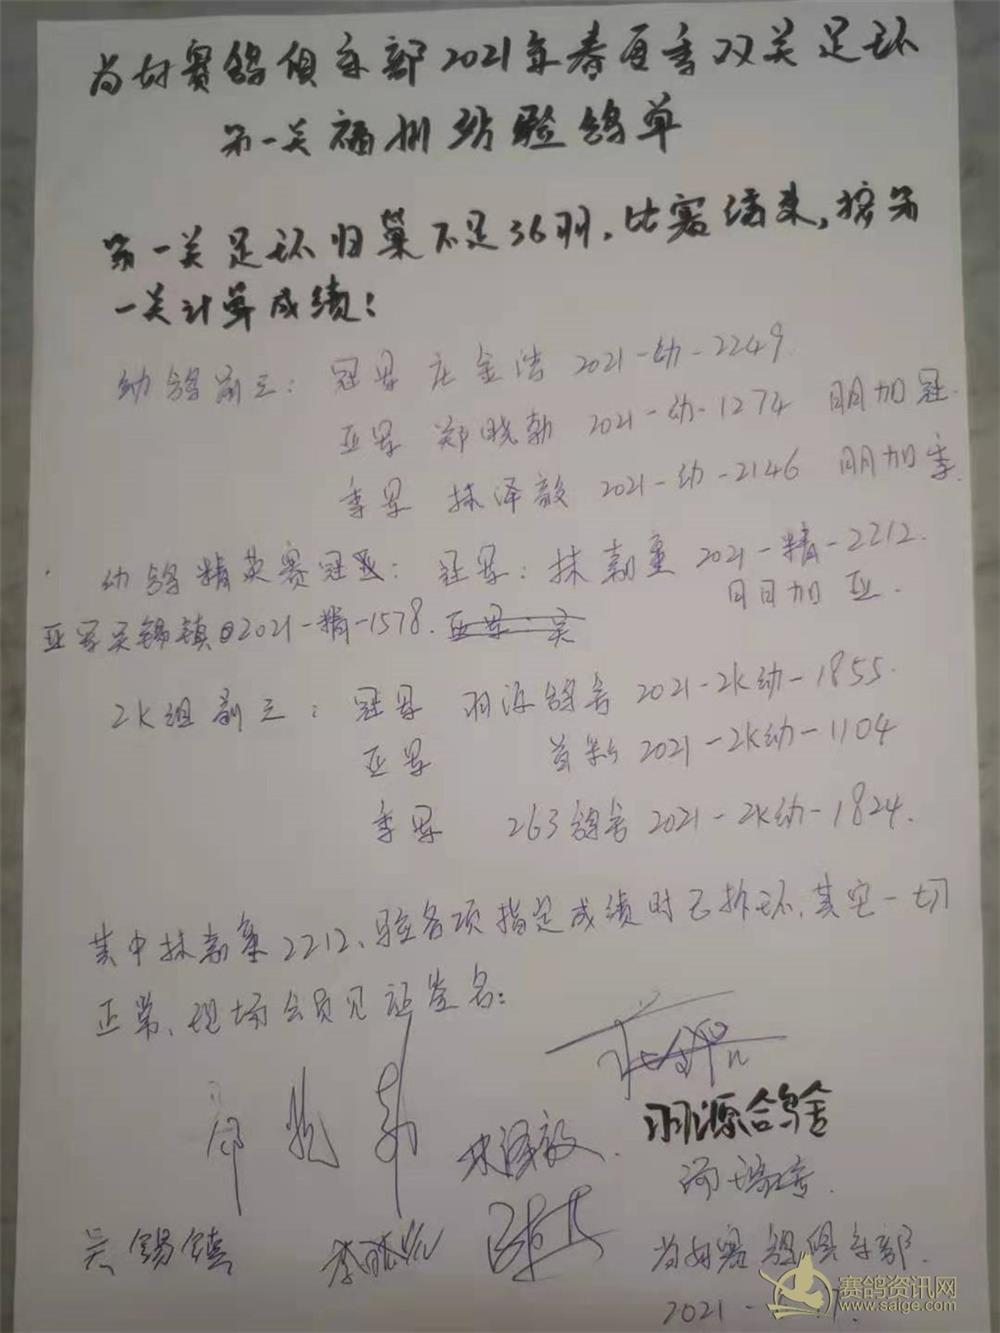 尚好赛鸽俱乐部2021年春夏季双关足环
第一关福州站验鸽单
第一关足环归巢不足36羽,比赛结束,按第
一关计算成绩:
幼鸽前三: 冠军 庄金浩 2021-幼-2249
亚军 郑晓勃 2021-幼-1274 明加冠.
季军 林泽毅 2021-幼-2146 明加季.
幼鸽精英赛冠亚: 冠军: 林 2021-精-2212.
加亚.
亚军吴锡镇 2021-精-1578.
2K组前三: 冠军 羽源鸽舍 2021-2K幼-1855.
亚军 2021-2K幼-1104
季军 263鸽舍 2021-2K幼-1824.
其中林 2212、验各项指定成绩时已拆环,其它一切
正常、现场会员见证签名:
林泽毅.
羽源鸽舍
吴锡镇
尚好赛鸽俱乐部.
2021-
赛鸽资讯网
www.saige.com